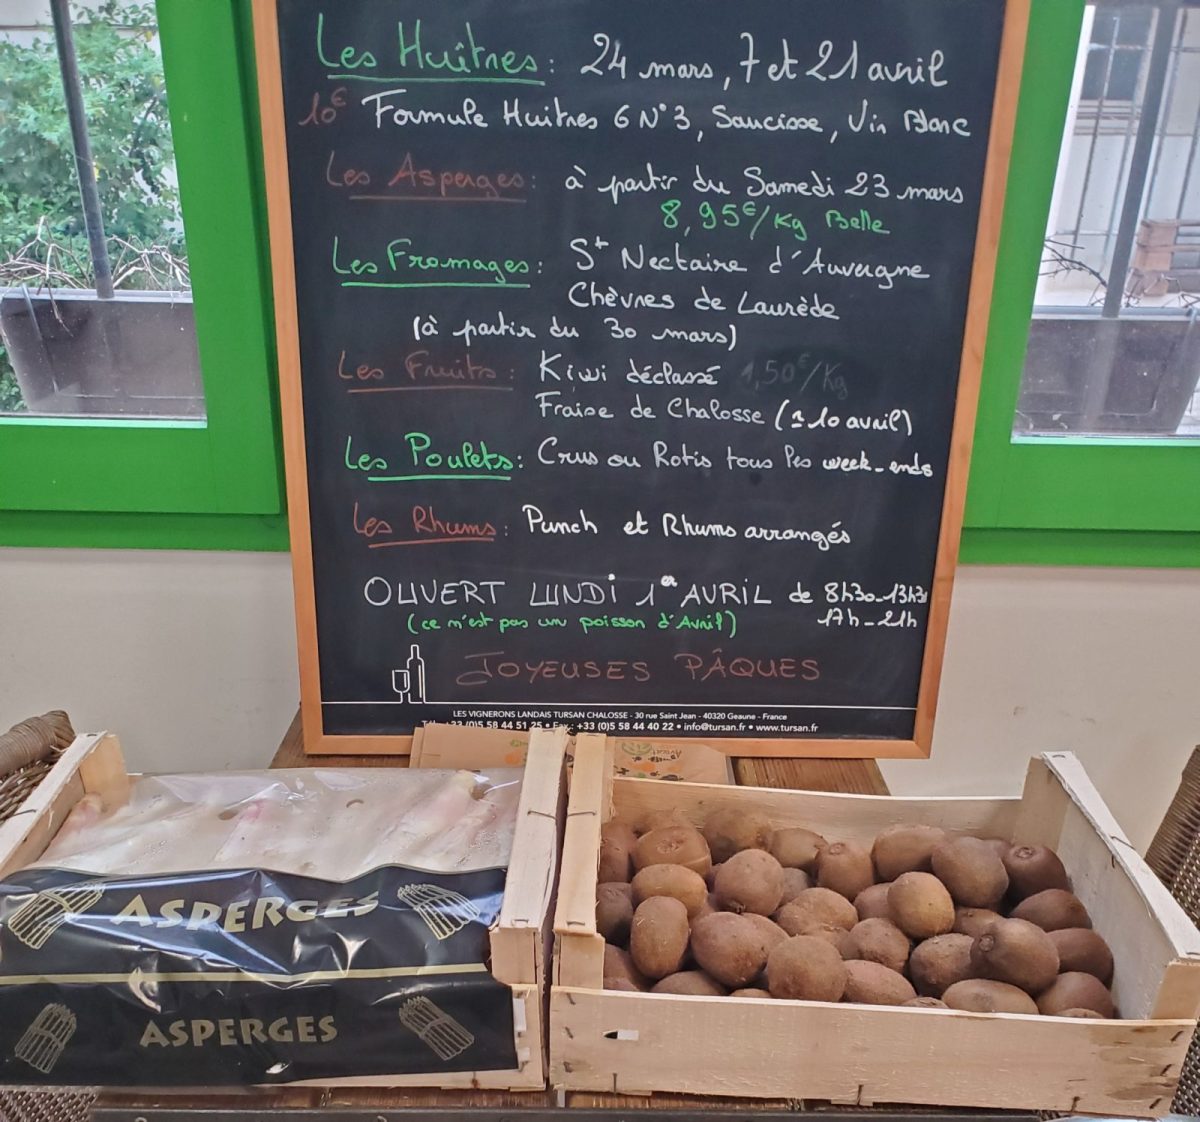 Les Huîtres : 24 mars, 7 et 21 avril
10€ Formule Huitres 6 N°3, Saucisse, Vin Blanc
Les Asperges : à partir du Samedi 23 mars
8,95€/Kg Belle
Les Fromages : St Nectaire d'Auvergne
Chèvres de Laurède
(à partir du 30 mars)
Les Fruits : Kiwi déclassé 1,50€/Kg
Fraise de Chalosse (± 10 avril)
Les Poulets : Crus ou Rotis tous les week-ends
Les Rhums : Punch et Rhums arrangés
OUVERT LUNDI 1er AVRIL de 8h30-13h30
17h-21h
(ce n'est pas un poisson d'Avril)
JOYEUSES PÂQUES
LES VIGNERONS LANDAIS TURSAN CHALOSSE - 30 rue Saint Jean - 40320 Geaune - France
+33 (0)5 58 44 51 25 • Fax : +33 (0)5 58 44 40 22 • info@tursan.fr • www.tursan.fr
ASPERGES
ASPERGES